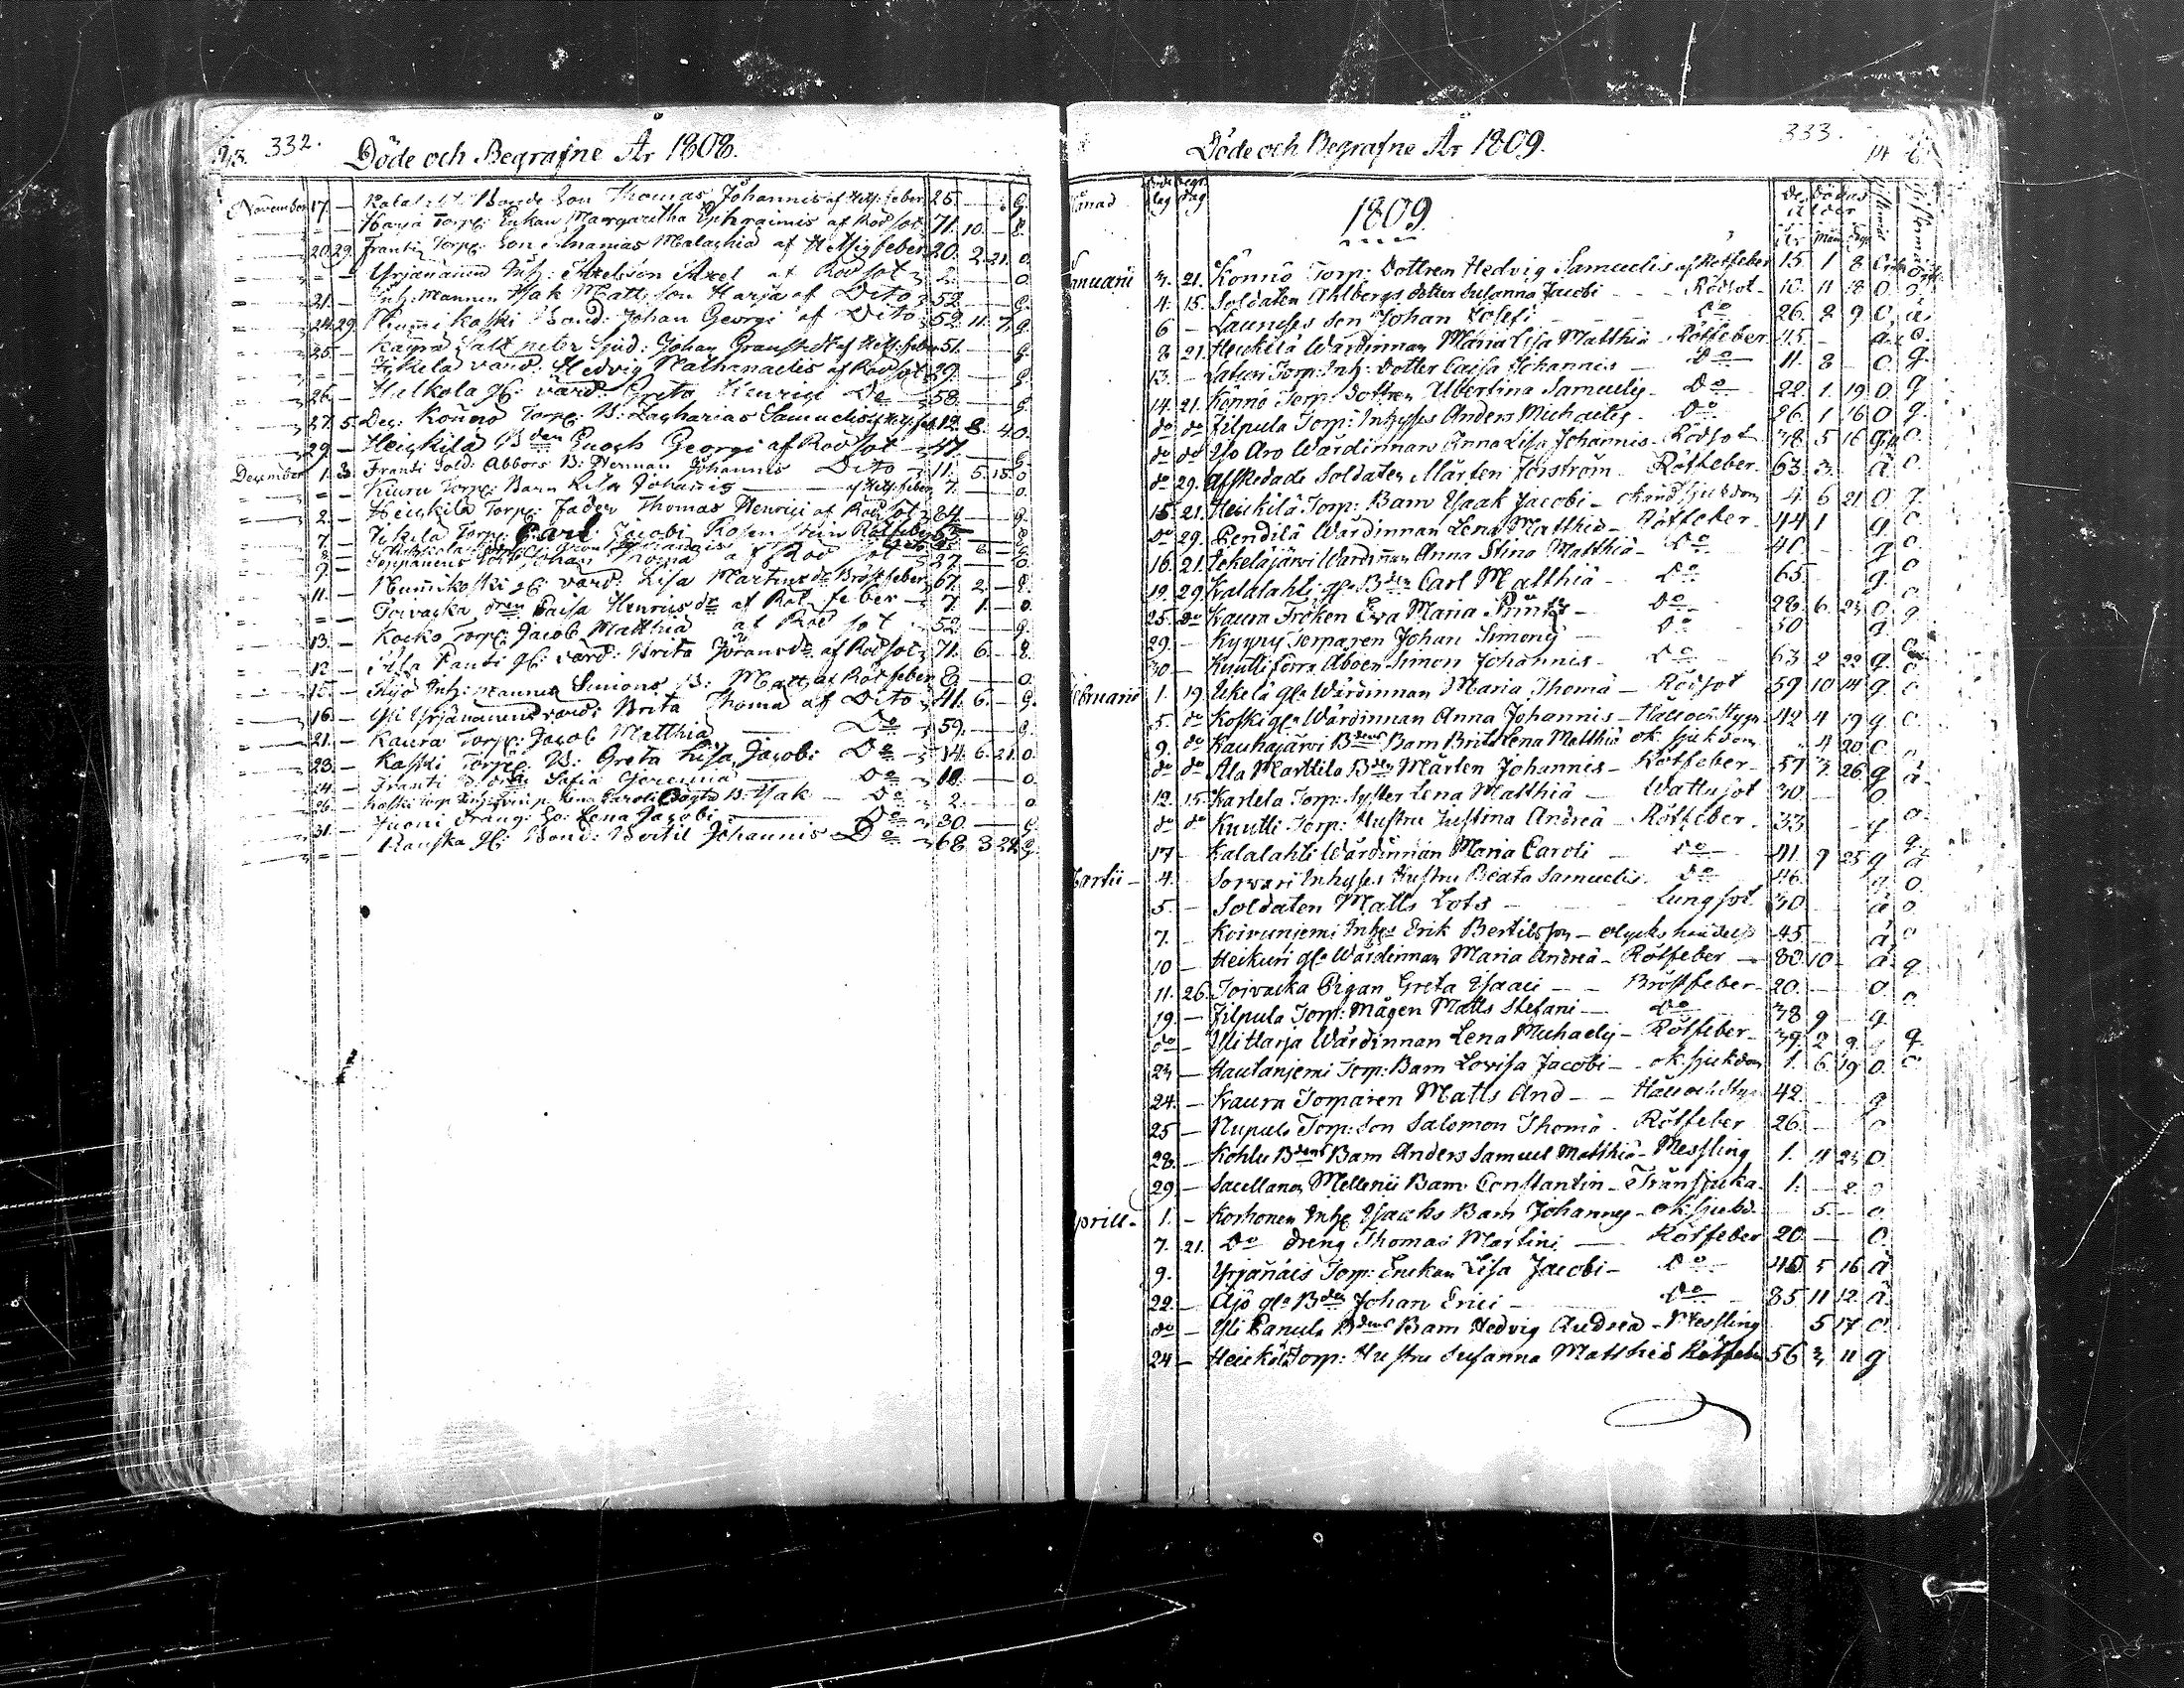 213. 332. Döde och Begrafne År 1808.
November 17. — Bonde Son Thomas Johannis af Hetsi: feber 25. — — g.
— — Harja Torp: Enkan Margaretha Ephraimis af Röd sot 71. 10. — E.
— 20. 29. Frantti Torp: Son Ananias Malachiæ af Hetsig feber 20. 2. 21. o.
— — Yrjänäinen Inh: Axelsson Axel af Röd sot 2. — — o.
— 21. — Inh: mannen Isak Matts son Harja af Dito 52. — — g.
— 24. 29. koski Bond: Johan Georgi af Dito 52. 11. 7. g.
— 25. — Kaura Salt peter Sjud: Johan af Hets: feber 51. — — g.
— — Jykelä värd: Hedvig Nathanaelis af Röd sot 29. — — g.
— 26. — Heikola gl: värd: Greta Henrici Do 58. — — g.
— 27. 5. Dec: Könnö Torp: B: Zacharias Samuelis af Hets: feb 12. 8. 4 o.
— 29. — Heickilä Bden Enoch Georgi af Röd sot 47. — — g.
December 1. 3. Frantti Sold: Abbors B: Herman Johannis Dito 11. 5. 18. o
— — Kiuru Torp: Barn Lisa Johannis — af Hets: feber 7. — — o.
— 2. — Heickilä Torp: Fader Thomas Henrici af Röd sot 84. — — g.
— 7. — Jykelä Torp: Carl Jacobi Rosenstein Rötfeber
— 9. — Johan Thomæ af Röd sot 37. — — o.
— 11. — Nummikoski gl: värd: Lisa Martins dr Bröstfeber 67. 2. — E.
— — Toivacka dren Caisa Henrics dr af Röt feber 7. 1. — o.
— 13. — Kocko Torp: Jacob Matthiæ af Röd sot 52. — — g.
— 12. — Panti gl: värd: Brita Jörans dr af Röd sot 71. 6. — E.
— 15. — Äijö Inh: mannen Simons B: Matts af Rötfeber 8. — — o.
— 16. — Yli Yrjänäinens värd: Brita Thomæ af Dito 41. 6. — g.
— 21. — Kaura Torp: Jacob Matthiæ — Do 59. — — g.
— 23. — Kaski Torp: B: Greta Lisa Jacobi Do 14. 6. 21. o.
— 24. — Frantti Sofia Do 10. — — o.
— 26. — Koski Torp: Caroli B: Isak — Do 2. — — o
— 31. — Tuoni dräng: So: Lena Jacobi — Do 30. — — g.
— — Rauska gl: Bond: Bertil Johannis Do 68. 3. 22. g.
Döde och Begrafne År 1809. 333. 214
Månad Död dag Begr. dag 1809. De Dödas ålder
År Mån: Dgr
Januarii 3. 21. Könnö Torp: Dottren Hedvig Samuelis af Rötfeber 15 1 8
4. 15. Soldaten Ahlbergs dotter Susanna Jacobi — Rödsot 10. 11 18 o o
6 — Launoises Son Johan Josefi — do 26. 2 9 o. ä.
8 21. Heickilä Wärdinnan Maria Lisa Matthiæ — Rötfeber 45. — o.
13. — Laturi Torp: Inh: Dotter Caisa Johannis — do 11. 8 — o g
14. 21. Könnö Torp: Dottren Albertina Samuelis — do 22. 1. 19 o. g
do do Filpula Torp: Inhyses Anders Michaelis — do 26. 1 16 o g.
do do Iso Aro Wärdinnan Anna Lisa Johannis — Rödsot 38. 5 16 o.
do 29. Afskedade Soldaten Mårten Forström — Rötfeber 63. 3. ä o
15. 21. Heickilä Torp: Barn Isaak Jacobi — okänd sjukdom 4. 6 21 o g.
do 29. Pendilä Wärdinnan Lena Matthiæ — Rötfeber 44 1 g o
16. 21. Jekeläjärvi Wärdinnan Anna Stina Matthiæ — do g o.
19. 29. Kalalahti gla Bden Carl Matthiæ — do 65. g o
25. do Kaura Fröken Eva Maria Printz — do 28. 6. 23 o. g
29. — Kyyny Torparen Johan Simonis — do 50 g
30. — Knutti förra Åboen Simon Johannis — do 63 2 22 g.
Februarii 1. 19. Ukelä gla Wärdinnan Maria Thomæ — Rödsot 59 10 14 g. o
5. do Koski gla Wärdinnan Anna Johannis — Håll och Styn 42 4 19 g o.
9. do Kauhajärvi Bdens Barn Brita Lena Matthiæ ok. sjukdom 4 20 o
do do Ala Marttila Bden Mårten Johannis — Rötfeber 57 7. 26. g ä
12. 15. Karlela Torp: Syster Lena Matthiæ — Wattusot 30. o
do do Knutti Torp: Hustru Justina Andreæ — Rötfeber 33. — g. o.
17 — Kalalahti Wärdinnan Maria Caroli — do 41. 9 25 g g.
Martii 4. — Sorvari Inhyses Hustru Beata Samuelis — do 46. g o.
5. — Soldaten Matts Lots — Lungsot 30 ä o
7. — Koivuniemi Inhs Erik Bertilsson — olyckshändelse 45. ä o
10 — Heikuri gla Wärdinnan Maria Andreæ — Rötfeber 80. 10 — ä. g
11. 26. Toivacka Pigan Greta Isaaci — Bröstfeber 20. — o.
19. — Filpula Torp: Mågen Matts Stefani — do 38 9 — g o.
do — Yli Harja Wärdinnan Lena Michaelis — Rötfeber 39. 2 9. g g.
23 — Hautaniemi Torp: Barn Lovisa Jacobi — ok. sjukdom 1. 6. 19 o. o
24. — Kaura Torparen Matts And — Håll och Styn 42. g
25 — Nupula Torp: Son Salomon Thomæ — Rötfeber 26. — o
28. — Kohlu Bdens Barn Anders Samuel Matthiæ — Messling 1. 11 23 o.
29 — Sacellanen Mellenii Barn Constantin — Trånsjuka 1. — 2. o
April 1. — Korhonen Inhs Isacks Barn Johannes — ok. sjukd. 5 — o.
7. 21. Do Dreng Thomas Martini — Rötfeber 20 — o.
9. — Yrjänäis Torp: Enckan Lisa Jacobi — do 45 5 16 ä
22. — Äijö gla Bden Johan Erici — do 85 11 12. ä.
do — Yli Panula Bdens Barn Hedvig Andreæ — Messling 5 17 o.
24 — Heickilä Torp: Hustru Susanna Matthiæ Rötfeber 56 3 11 g